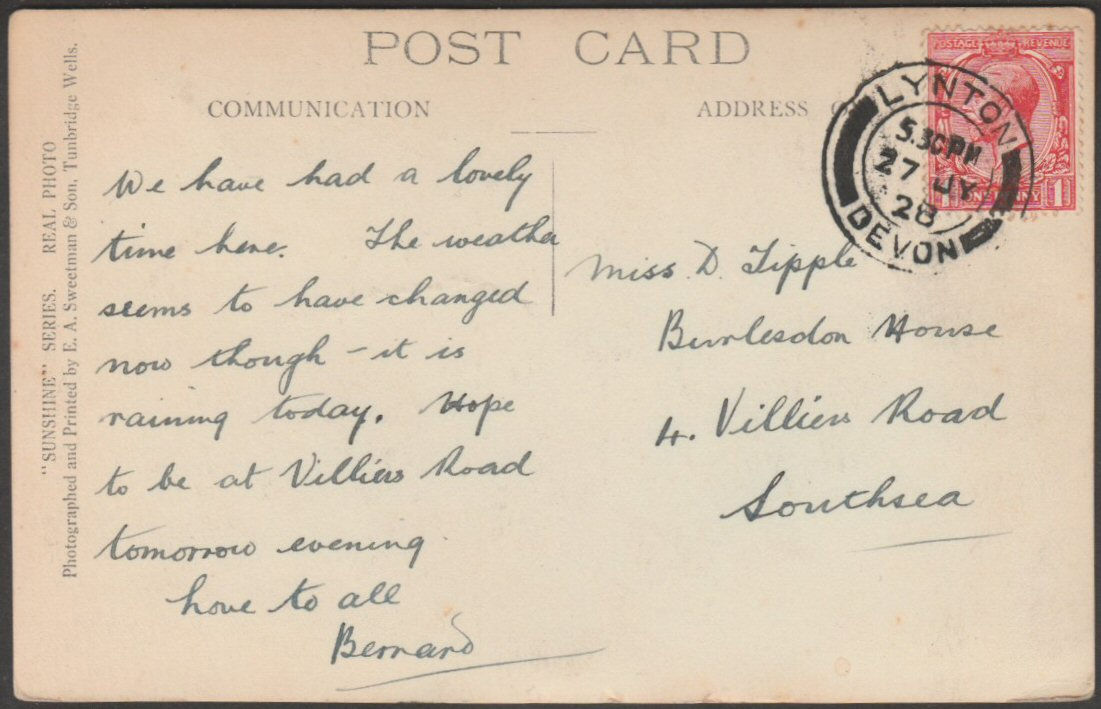 POST CARD
COMMUNICATION
ADDRESS
"SUNSHINE" SERIES. REAL PHOTO
Photographed and Printed by E. A. Sweetman & Son, Tunbridge Wells.
We have had a lovely
time here. The weather
seems to have changed
now though - it is
raining today. Hope
to be at Villiers Road
tomorrow evening
Love to all
Bernard
POSTAGE REVENUE
1 ONE PENNY 1
LYNTON
5.30PM
27 JY
28
DEVON
Miss D. Tipple
Burlesdon House
4. Villiers Road
Southsea